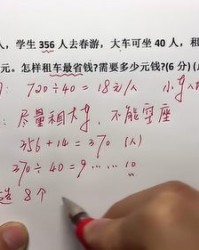 人，学生 356 人去春游，大车可坐 40 人，租
元。怎样租车最省钱?需要多少元钱?(6 分)
720÷40 = 18元/人 小
尽量租大车，不能空座
356 + 14 = 370 (人)
370 ÷ 40 = 9 …… 10
8 个